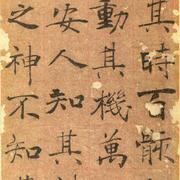 其時百骸
動其機萬
安人知其神
之神不知